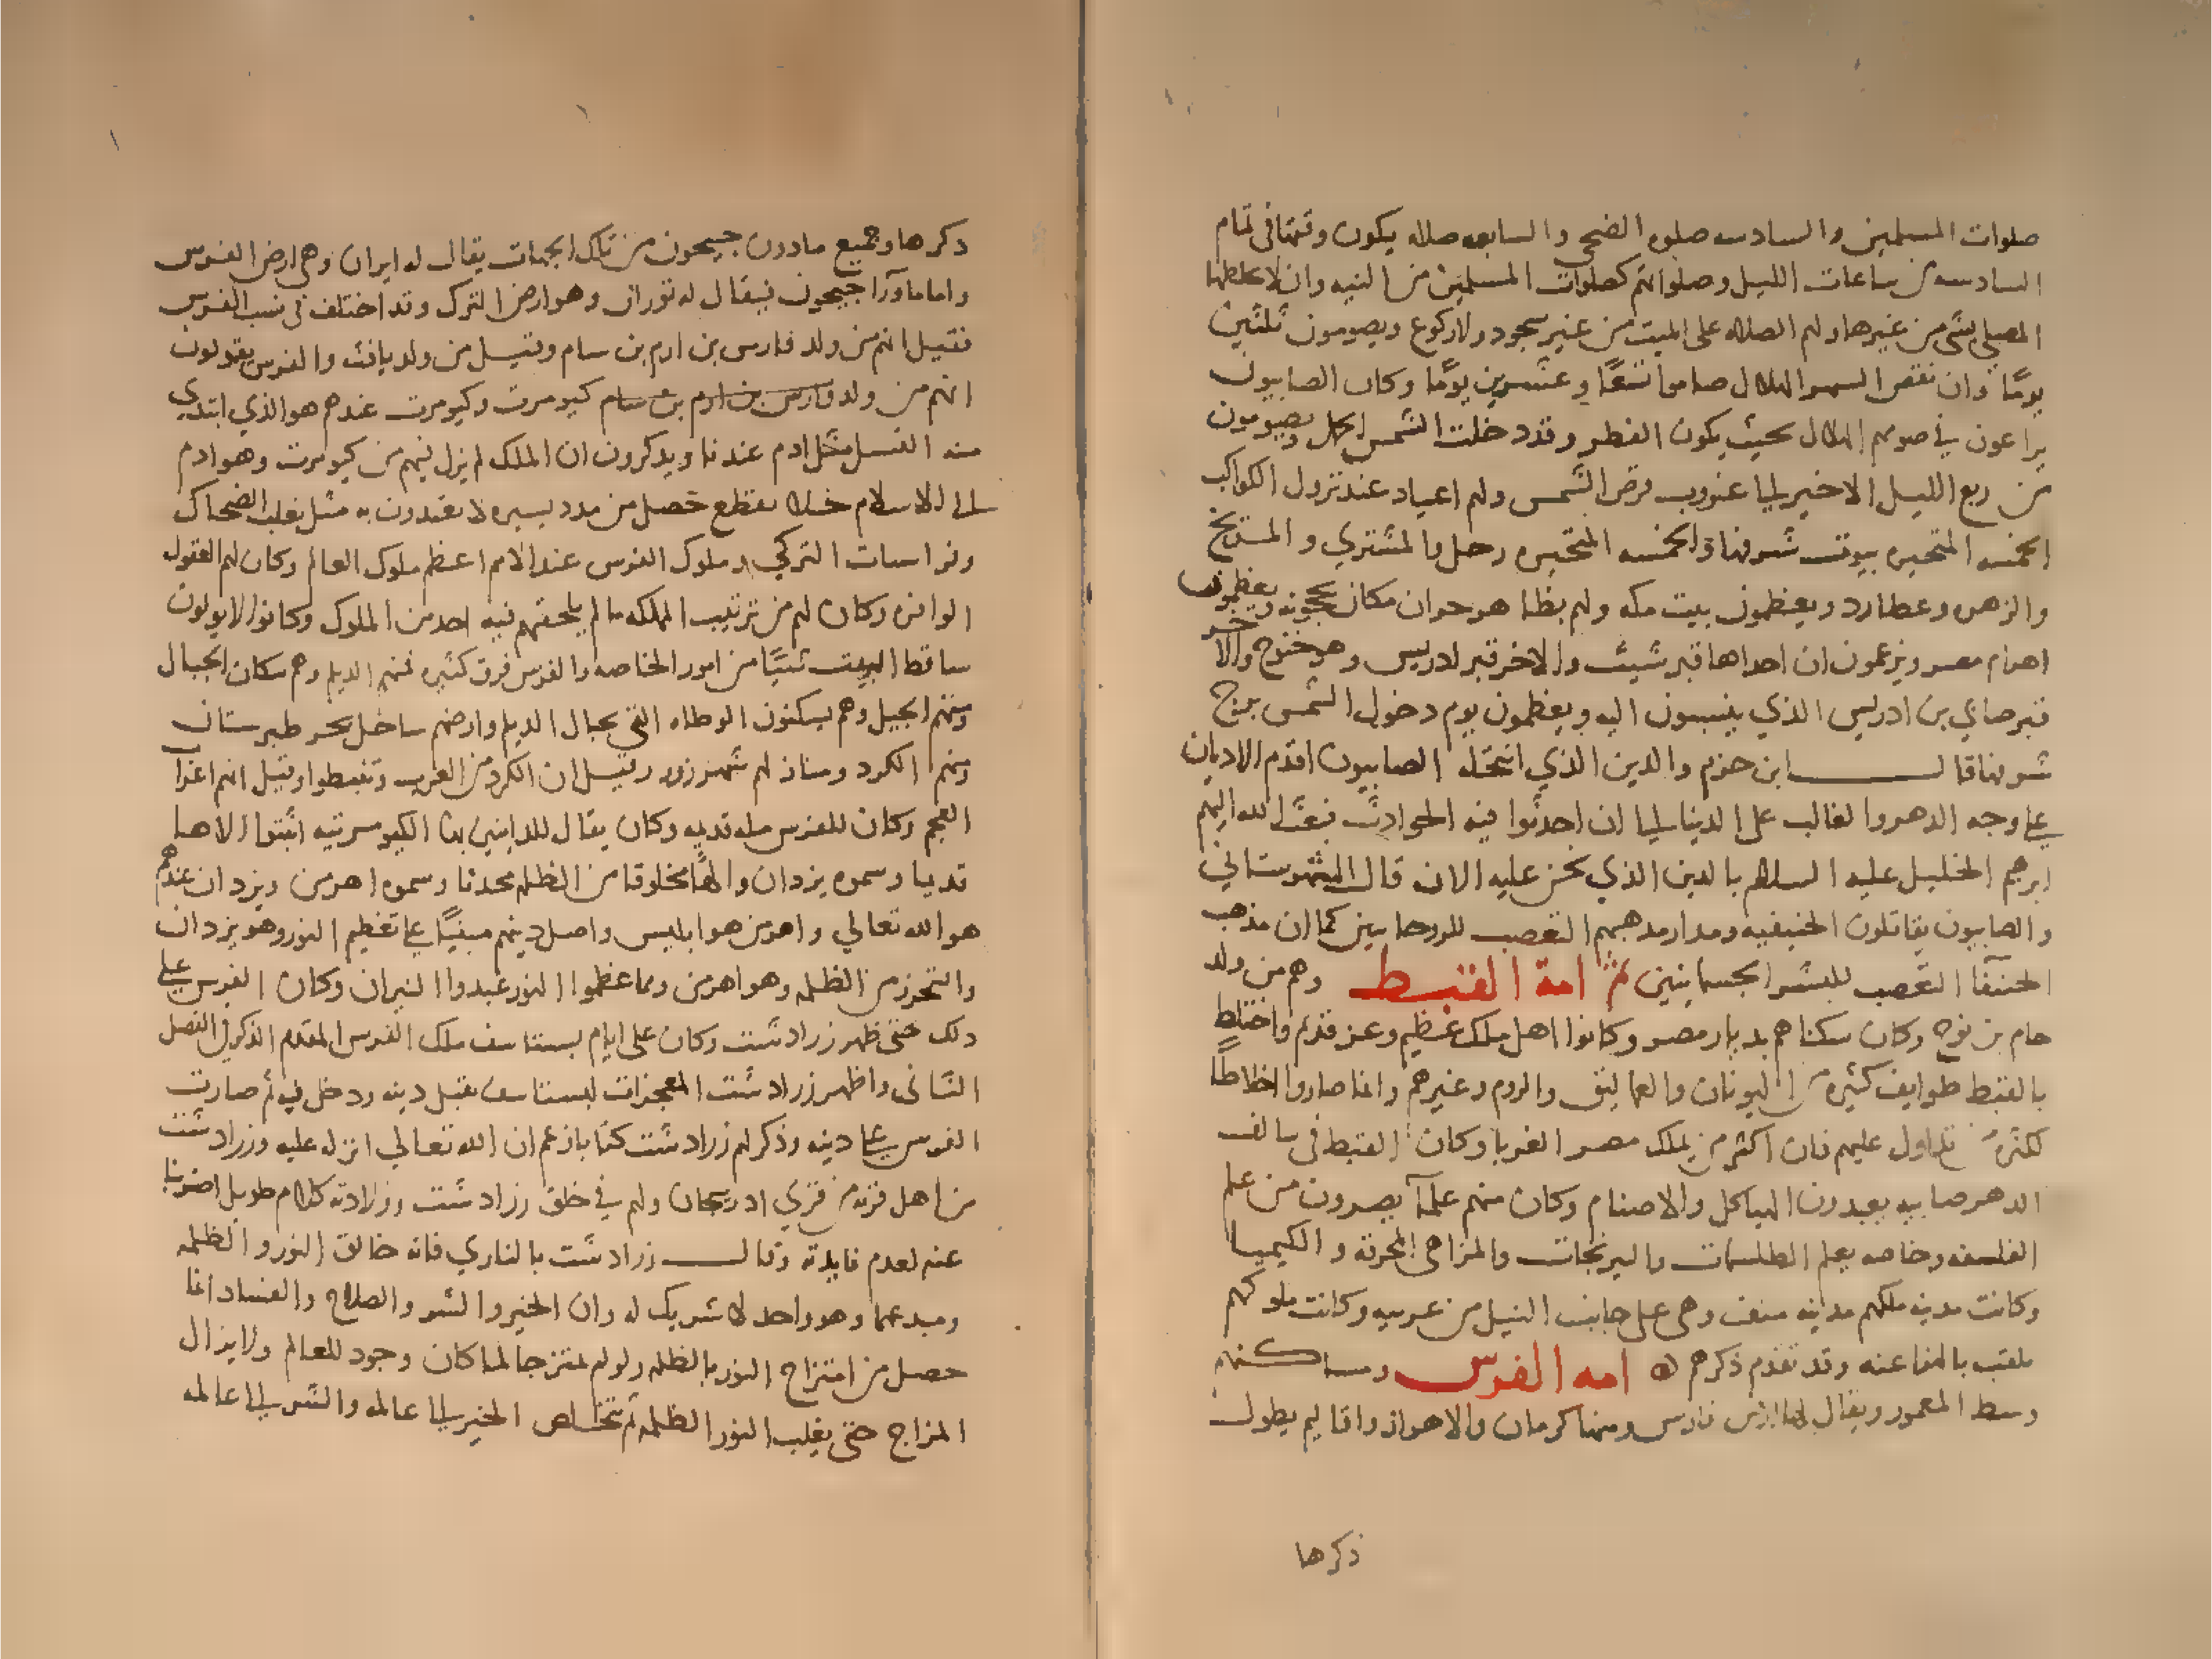 صلوات المسلمين والسادسه صلوه الضحى والسابعه صلاه يكون وقتها فى تمام
السادسه من ساعات الليل وصلواتهم كصلوات المسلمين من النيه وان لا يخلطها
المصلى بشى من غيرها ولهم الصلاه على الميت من غير سجود ولا ركوع ويصومون ثلثين
يومًا وان نقص الشهر الهلال صاموا تسعًا وعشرين يومًا وكان الصابيون
يراعون في صومهم الهلال بحيث يكون الفطر وقد دخلت الشمس الحمل ويصومون
من ربع الليل الاخير الي غروب قرص الشمس ولهم اعياد عند نزول الكواكب
الخمسه المتحيره بيوت شرفها والخمسه المتحيره زحل والمشتري والمريخ
والزهره وعطارد ويعظمون بيت مكه ولهم بظاهر حران مكان يحجونه ويعظمون
اهرام مصر ويزعمون ان احداها قبر شيث والاخر قبر ادريس وهو خنوخ والاخر
قبر صابي بن ادريس الذي ينتسبون اليه ويعظمون يوم دخول الشمس برج
شرفها قال ابن حزم والدين الذي انتحله الصابيون اقدم الاديان
على وجه الدهر والغالب على الدنيا الي ان احدثوا فيه الحوادث فبعث الله اليهم
ابرهيم الخليل عليه السلام بالدين الذي نحن عليه الان قال الشهرستاني
والصابيون يقاتلون الحنيفيه ومدار مذهبهم التعصب للروحانيين كما ان مذهب
الحنفآ التعصب للبشر الجسمانيين ثم امة القبط وهم من ولد
حام بن نوح وكان سكناهم بديار مصر وكانوا اهل ملك عظيم وعز قديم واختلط
بالقبط طوايف كثيره من اليونان والعماليق والروم وغيرهم وانما صاروا اخلاطًا
لكثرة من تداول عليهم فان اكثر من يملك مصر الغربا وكان القبط فى سالف
الدهر صابيه يعبدون الهياكل والاصنام وكان منهم علمآ بصرون من علم
الفلسفه وخاصه بعلم الطلسمات والنيرنجات والمراحى المحرقه والكيميا
وكانت مدينه ملكهم مدينه منف وهى على جانب النيل من غربيه وكانت ملوكهم
تلقب بالفراعنه وقد تقدم ذكرهم ه امه الفرس ومساكنهم
وسط المعمور ويقال لها ارض فارس ومنها كرمان والاهواز واقاليم يطول
ذكرها
ذكرها وجميع مادون جيحون من تلك الجهات يقال له ايران وهى ارض الفرس
واما ماورآ جيحون فيقال له توران وهو ارض الترك وقد اختلف فى نسب الفرس
فقيل انهم من ولد فارس بن ارم بن سام وقيل من ولد يافث والفرس يقولون
انهم من ولد فارس بن ارم بن سام كيومرت وكيومرت عندهم هو الذي ابتدي
منه النسل مثل ادم عندنا ويذكرون ان الملك لم يزل فيهم من كيومرت وهو ادم
الي الاسلام خلا تقطع حصل من مدد يسيره لا يعتدون به مثل تغلب الضحاك
وفراسياب التركي وملوك الفرس عند الامم اعظم ملوك العالم وكان لهم العقول
الوافره وكان لهم من ترتيب المملكه ما لم يلحقهم فيه احد من الملوك وكانوا لا يولون
ساقط البيت شيًا من امور الخاصه والفرس فرق كثيره فمنهم الديلم وهم سكان الجبال
ومنهم الجيل وهم يسكنون الوطاه التي بجبال الديلم وارضهم ساحل بحر طبرستان
ومنهم الكرد ومنازلهم شهرزور وقيل ان الكرد من العرب وتنبطوا وقيل انهم اعراب
العجم وكان للفرس مله قديمه وكان يقال للداينين بها الكيومرتيه اثبتوا الاها
قديما وسموه يزدان والهًا مخلوقا من الظلمه محدثا وسموه اهرمن ويزدان عندهم
هو الله تعالي واهرمن هو ابليس واصل دينهم مبنيًا على تعظيم النور وهو يزدان
والتحرز من الظلمه وهو اهرمن ولما عظموا النور عبدوا النيران وكان الفرس على
ذلك حتى ظهر زرادشت وكان على ايام بستاسف ملك الفرس المقدم الذكر فى الفصل
الثانى واظهر زرادشت المعجزات لبستاسف فقبل دينه ودخل فيه ثم صارت
الفرس على دينه وذكر لهم زرادشت كتابا زعم ان الله تعالي انزله عليه وزرادشت
من اهل قريه من قري ادربيجان ولهم في خلق زرادشت وولادته كلام طويل اضربنا
عنه لعدم فايدته وقال زرادشت بالباري فانه خالق النور والظلمه
ومبدعهما وهو واحد لا شريك له وان الخير والشر والصلاح والفساد انما
حصل من امتزاج النور بالظلمه ولو لم يمتزجا لما كان وجود للعالم ولا يزال
المزاج حتى يغلب النور الظلمه ثم يتخلص الخير الي عالمه والشر الي عالمه